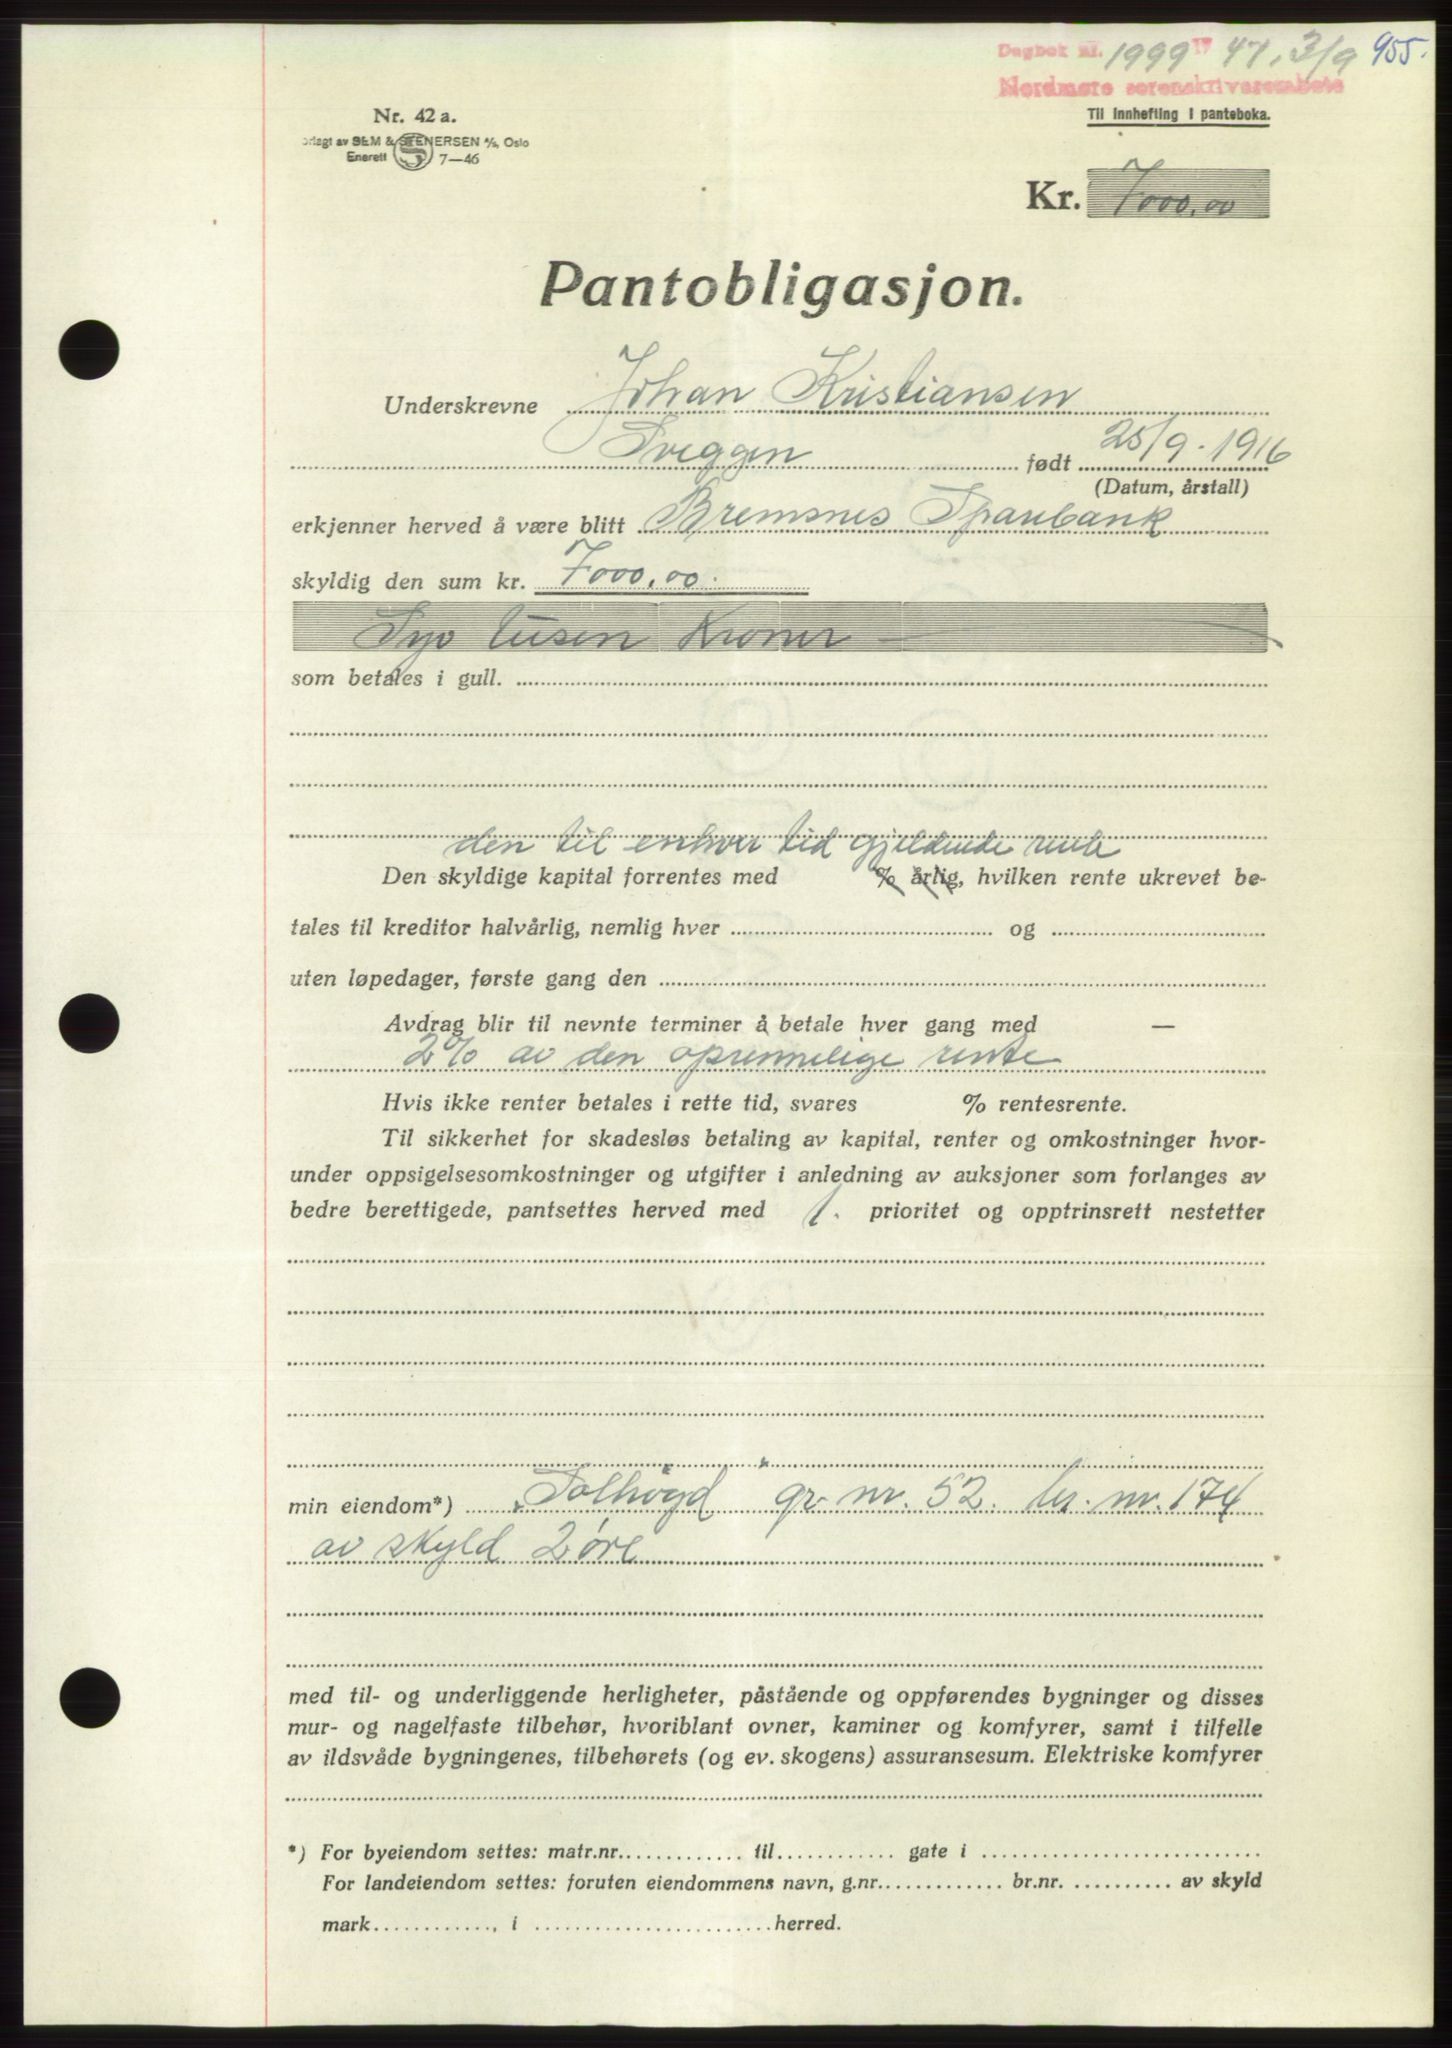 Dagbok nr. 1999 19 47. 3/9 955.
Nordmøre sorenskriverembete
Nr. 42 a.
Til innhefting i panteboka.
orlagt av SEM & STENERSEN A/S, Oslo
Enerett 7—46
Kr. 7000,00
Pantobligasjon.
Underskrevne Johan Kristiansen
Sveggen født 25/9-1916
(Datum, årstall)
erkjenner herved å være blitt Bremsnes Sparebank
skyldig den sum kr. 7000,00.
Syv tusen kroner —
som betales i gull.
den til enhver tid gjeldende rente
Den skyldige kapital forrentes med % årlig, hvilken rente ukrevet be-
tales til kreditor halvårlig, nemlig hver og
uten løpedager, første gang den
Avdrag blir til nevnte terminer å betale hver gang med —
2% av den oprinnelige rente
Hvis ikke renter betales i rette tid, svares % rentesrente.
Til sikkerhet for skadesløs betaling av kapital, renter og omkostninger hvor-
under oppsigelsesomkostninger og utgifter i anledning av auksjoner som forlanges av
bedre berettigede, pantsettes herved med 1. prioritet og opptrinsrett nestetter
min eiendom*) "Solhøgd" gr. nr. 52. br. nr. 174
av skyld 2 øre
med til- og underliggende herligheter, påstående og oppførendes bygninger og disses
mur- og nagelfaste tilbehør, hvoriblant ovner, kaminer og komfyrer, samt i tilfelle
av ildsvåde bygningenes, tilbehørets (og ev. skogens) assuransesum. Elektriske komfyrer
*) For byeiendom settes: matr.nr. til gate i
For landeiendom settes: foruten eiendommens navn, g.nr. br.nr. av skyld
mark , i herred.